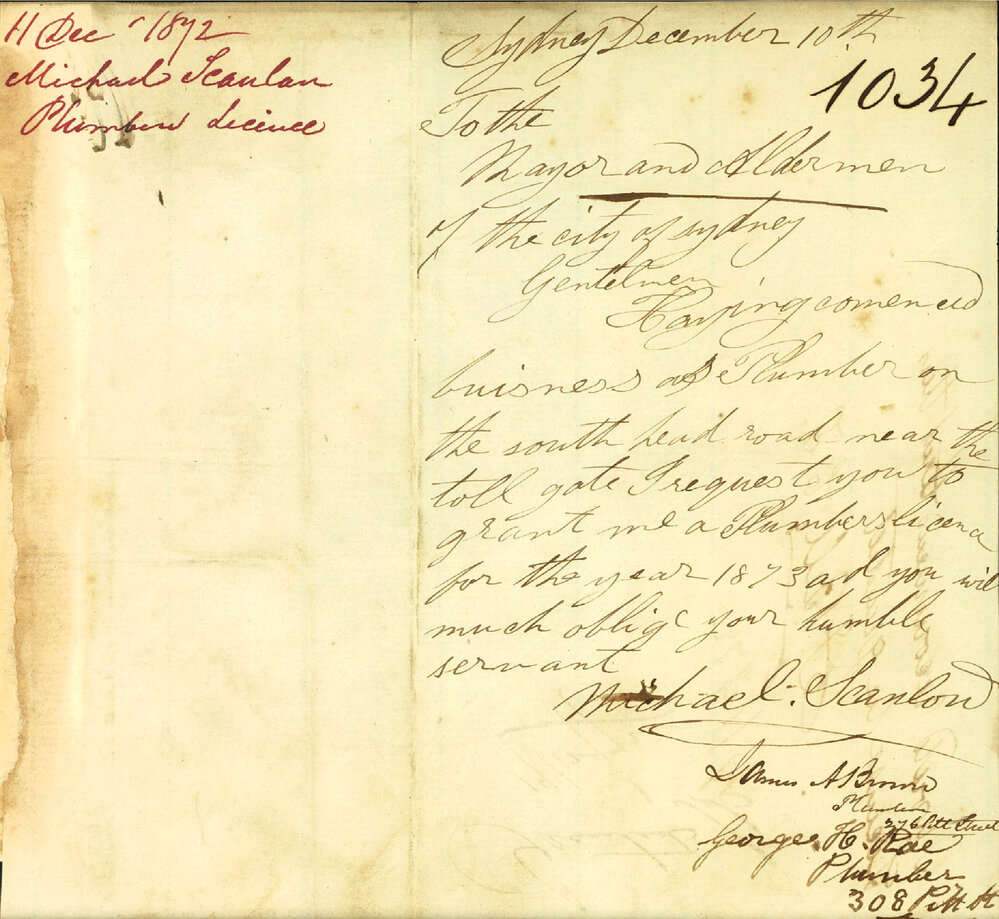 11 Dec 1872
Michael Scanlan
Plumbers Licence
Sydney December 10th
1034
To the
Mayor and Aldermen
of the city of sydney
Gentelmen
Having comenced
buisness as Plumber on
the south head road near the
toll gate I request you to
grant me a Plumbers licence
for the year 1873 ad you will
much oblige your humble
servant
Michael Scanlon
James A Brown
Plumber
376 Pitt Street
George H. Rae
Plumber
308 Pitt St